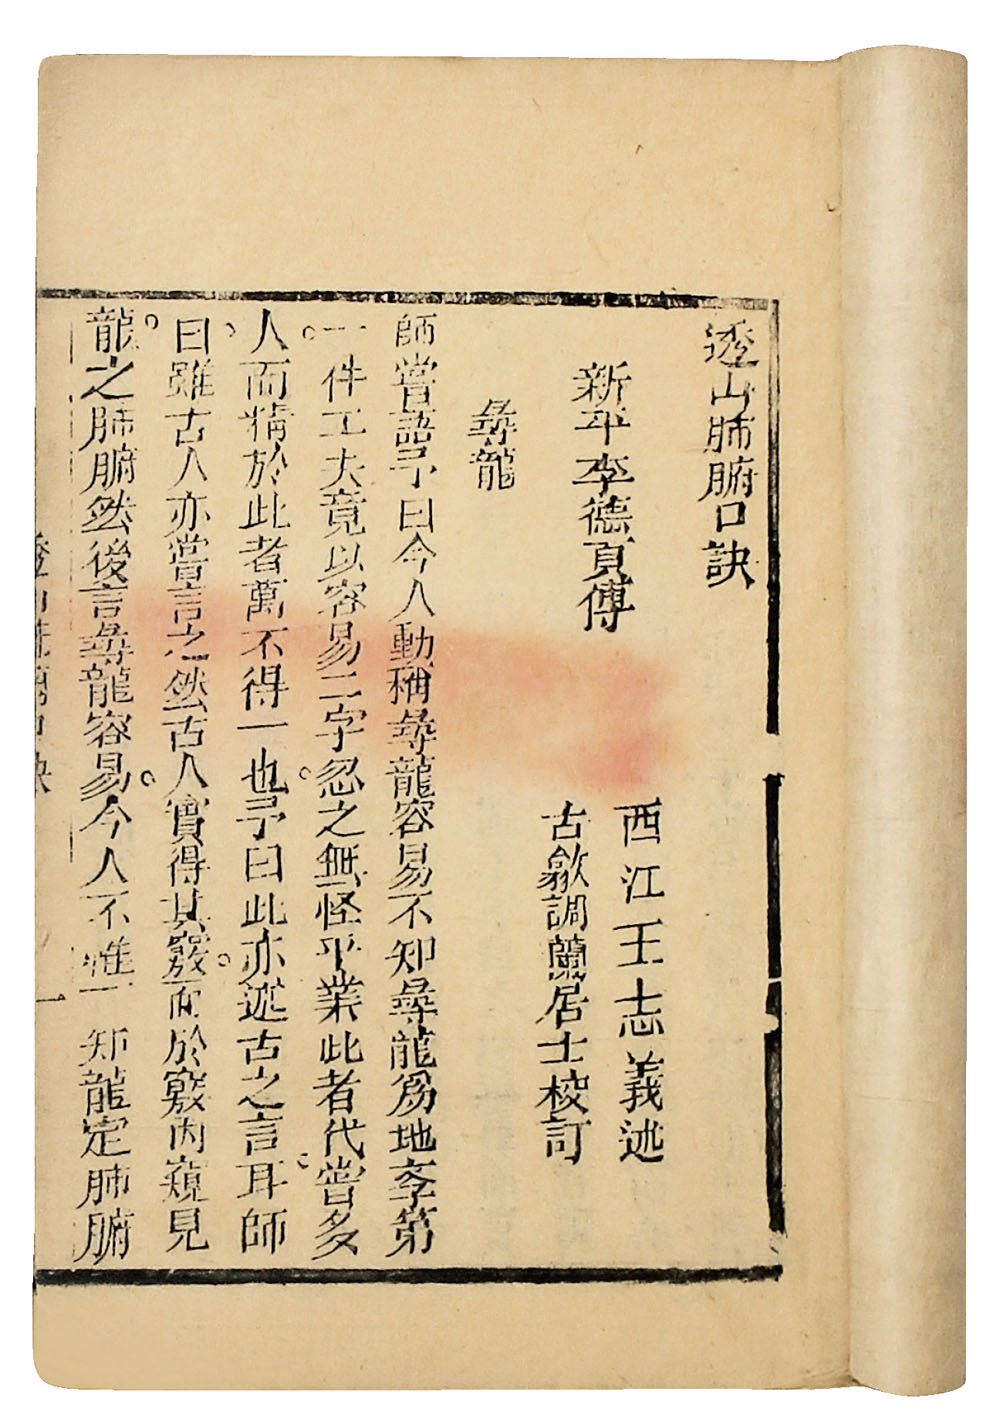 透山肺腑口訣
新平李德貞傳
西江王志義述
古歙調蘭居士校訂
尋龍
師嘗語予曰今人動稱尋龍容易不知尋龍爲地李第
一件工夫竟以容易二字忽之無怪乎業此者代嘗多
人而精於此者萬不得一也予曰此亦述古之言耳師
曰雖古人亦嘗言之然古人實得其竅而於竅內窺見
龍之肺腑然後言尋龍容易今人不惟不知龍定肺腑